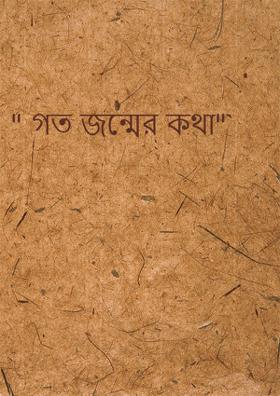 " গত জন্মের কথা"